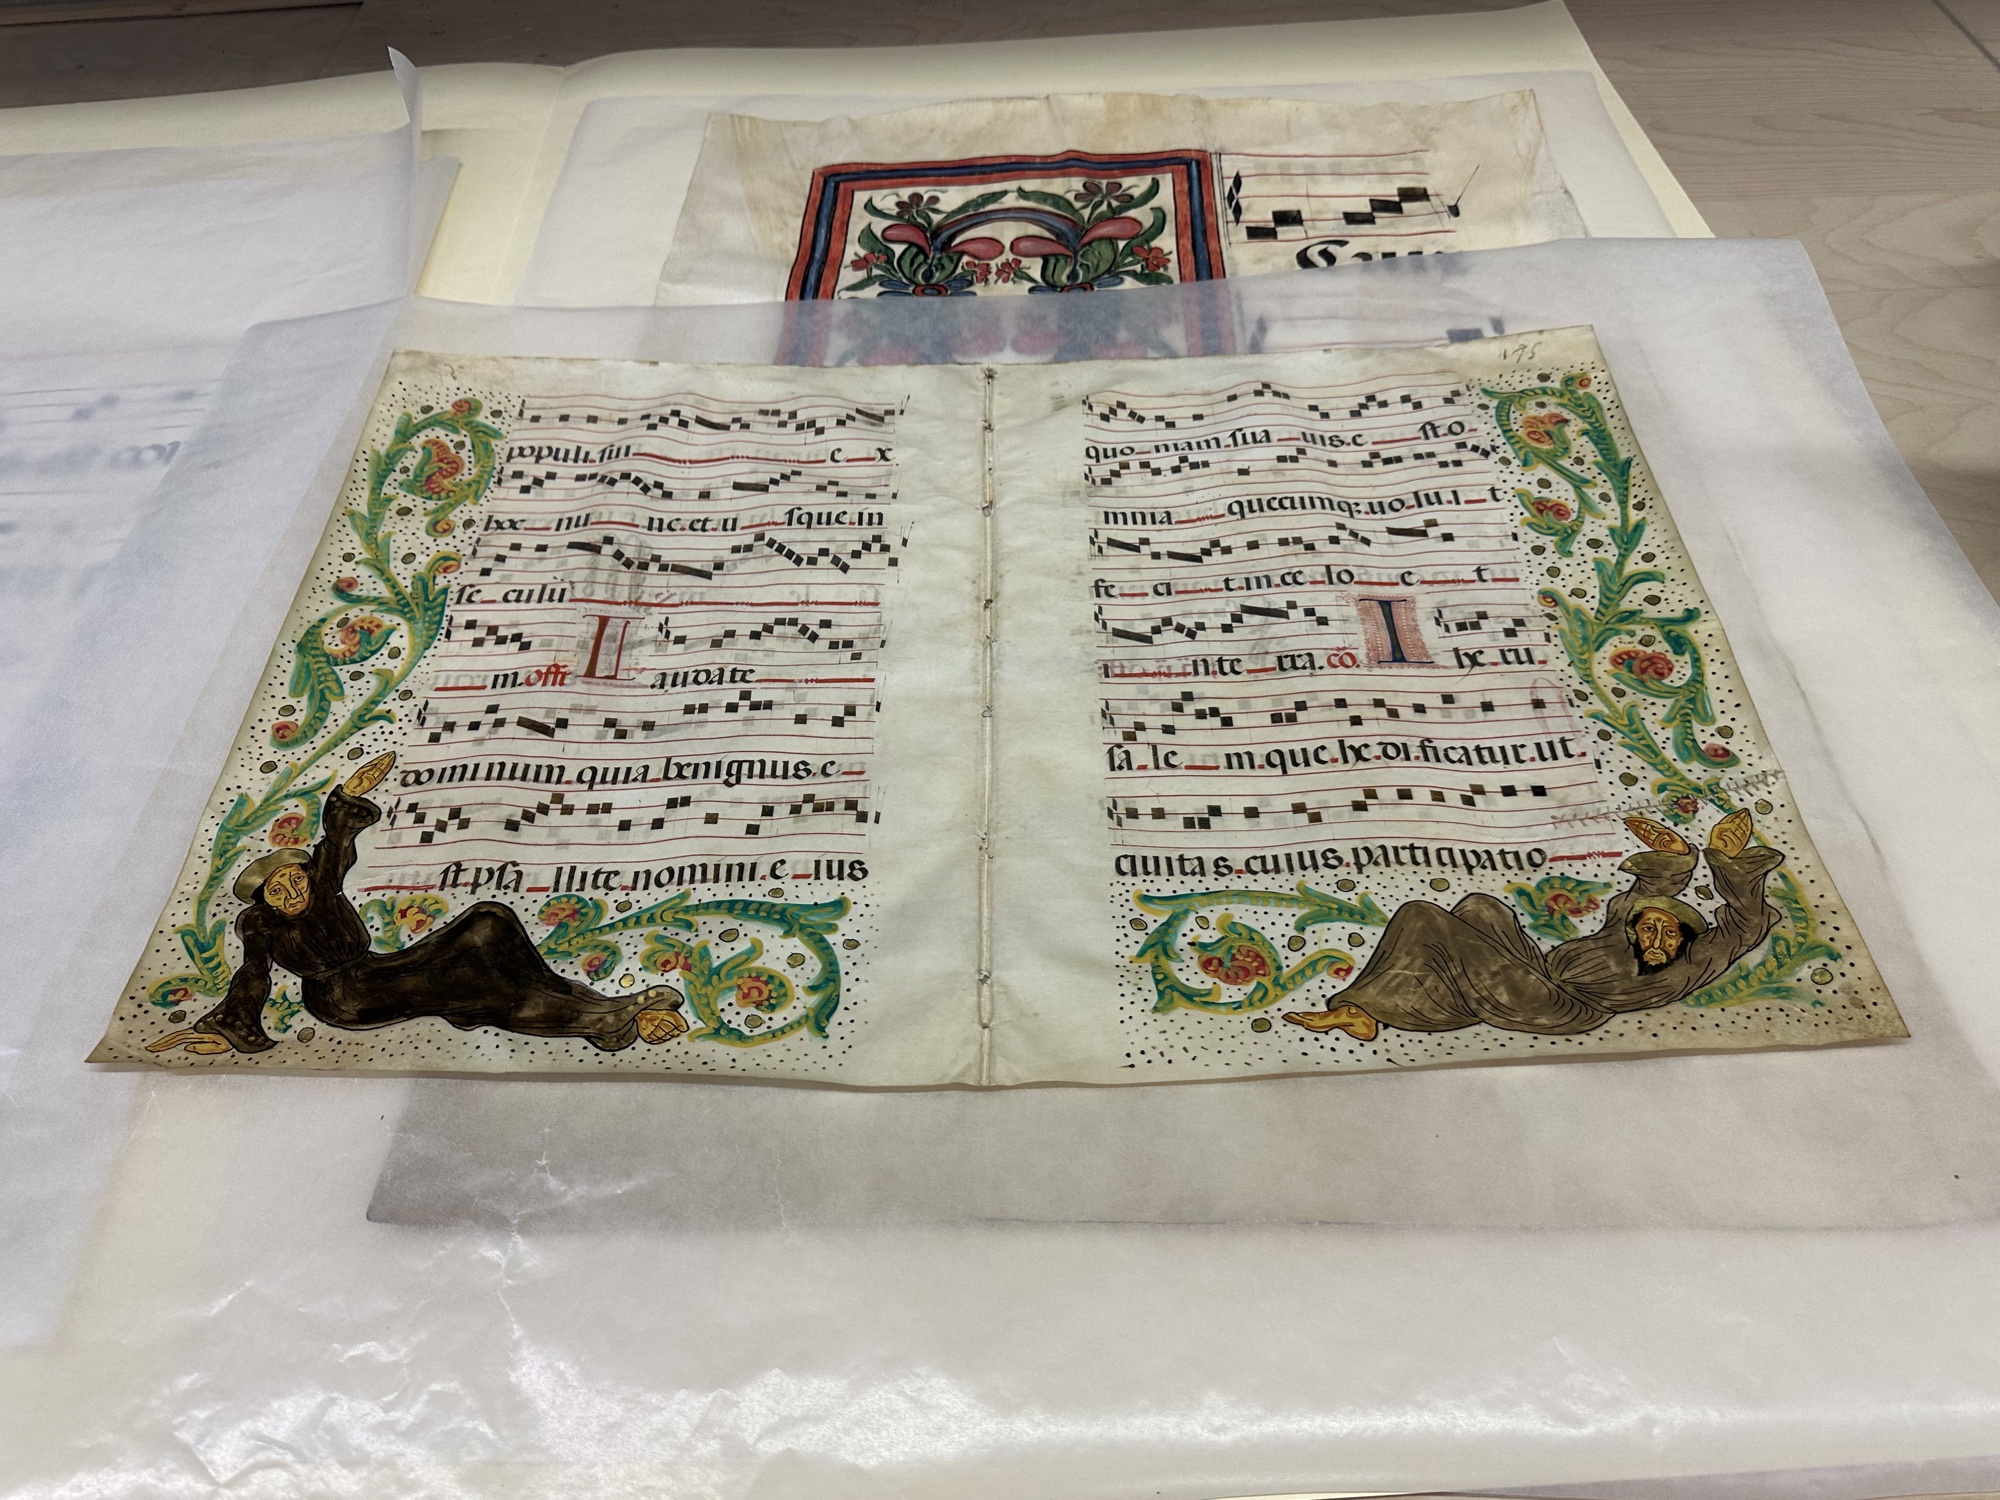 175
populi sui e x
hoc nu nc.et.u sque.in
se culu
m.offr Laudate
dominum quia benignus.e
st.psa llite.nomini.e ius
quo niam.sua uis.e st.o
mnia quecumq;.uo.lu.i t
fe ci t.in.ce lo e t
i nte rra.co. I he ru
sa le m.que.he.di.ficatur.ut
ciuita s.cuius.participatio